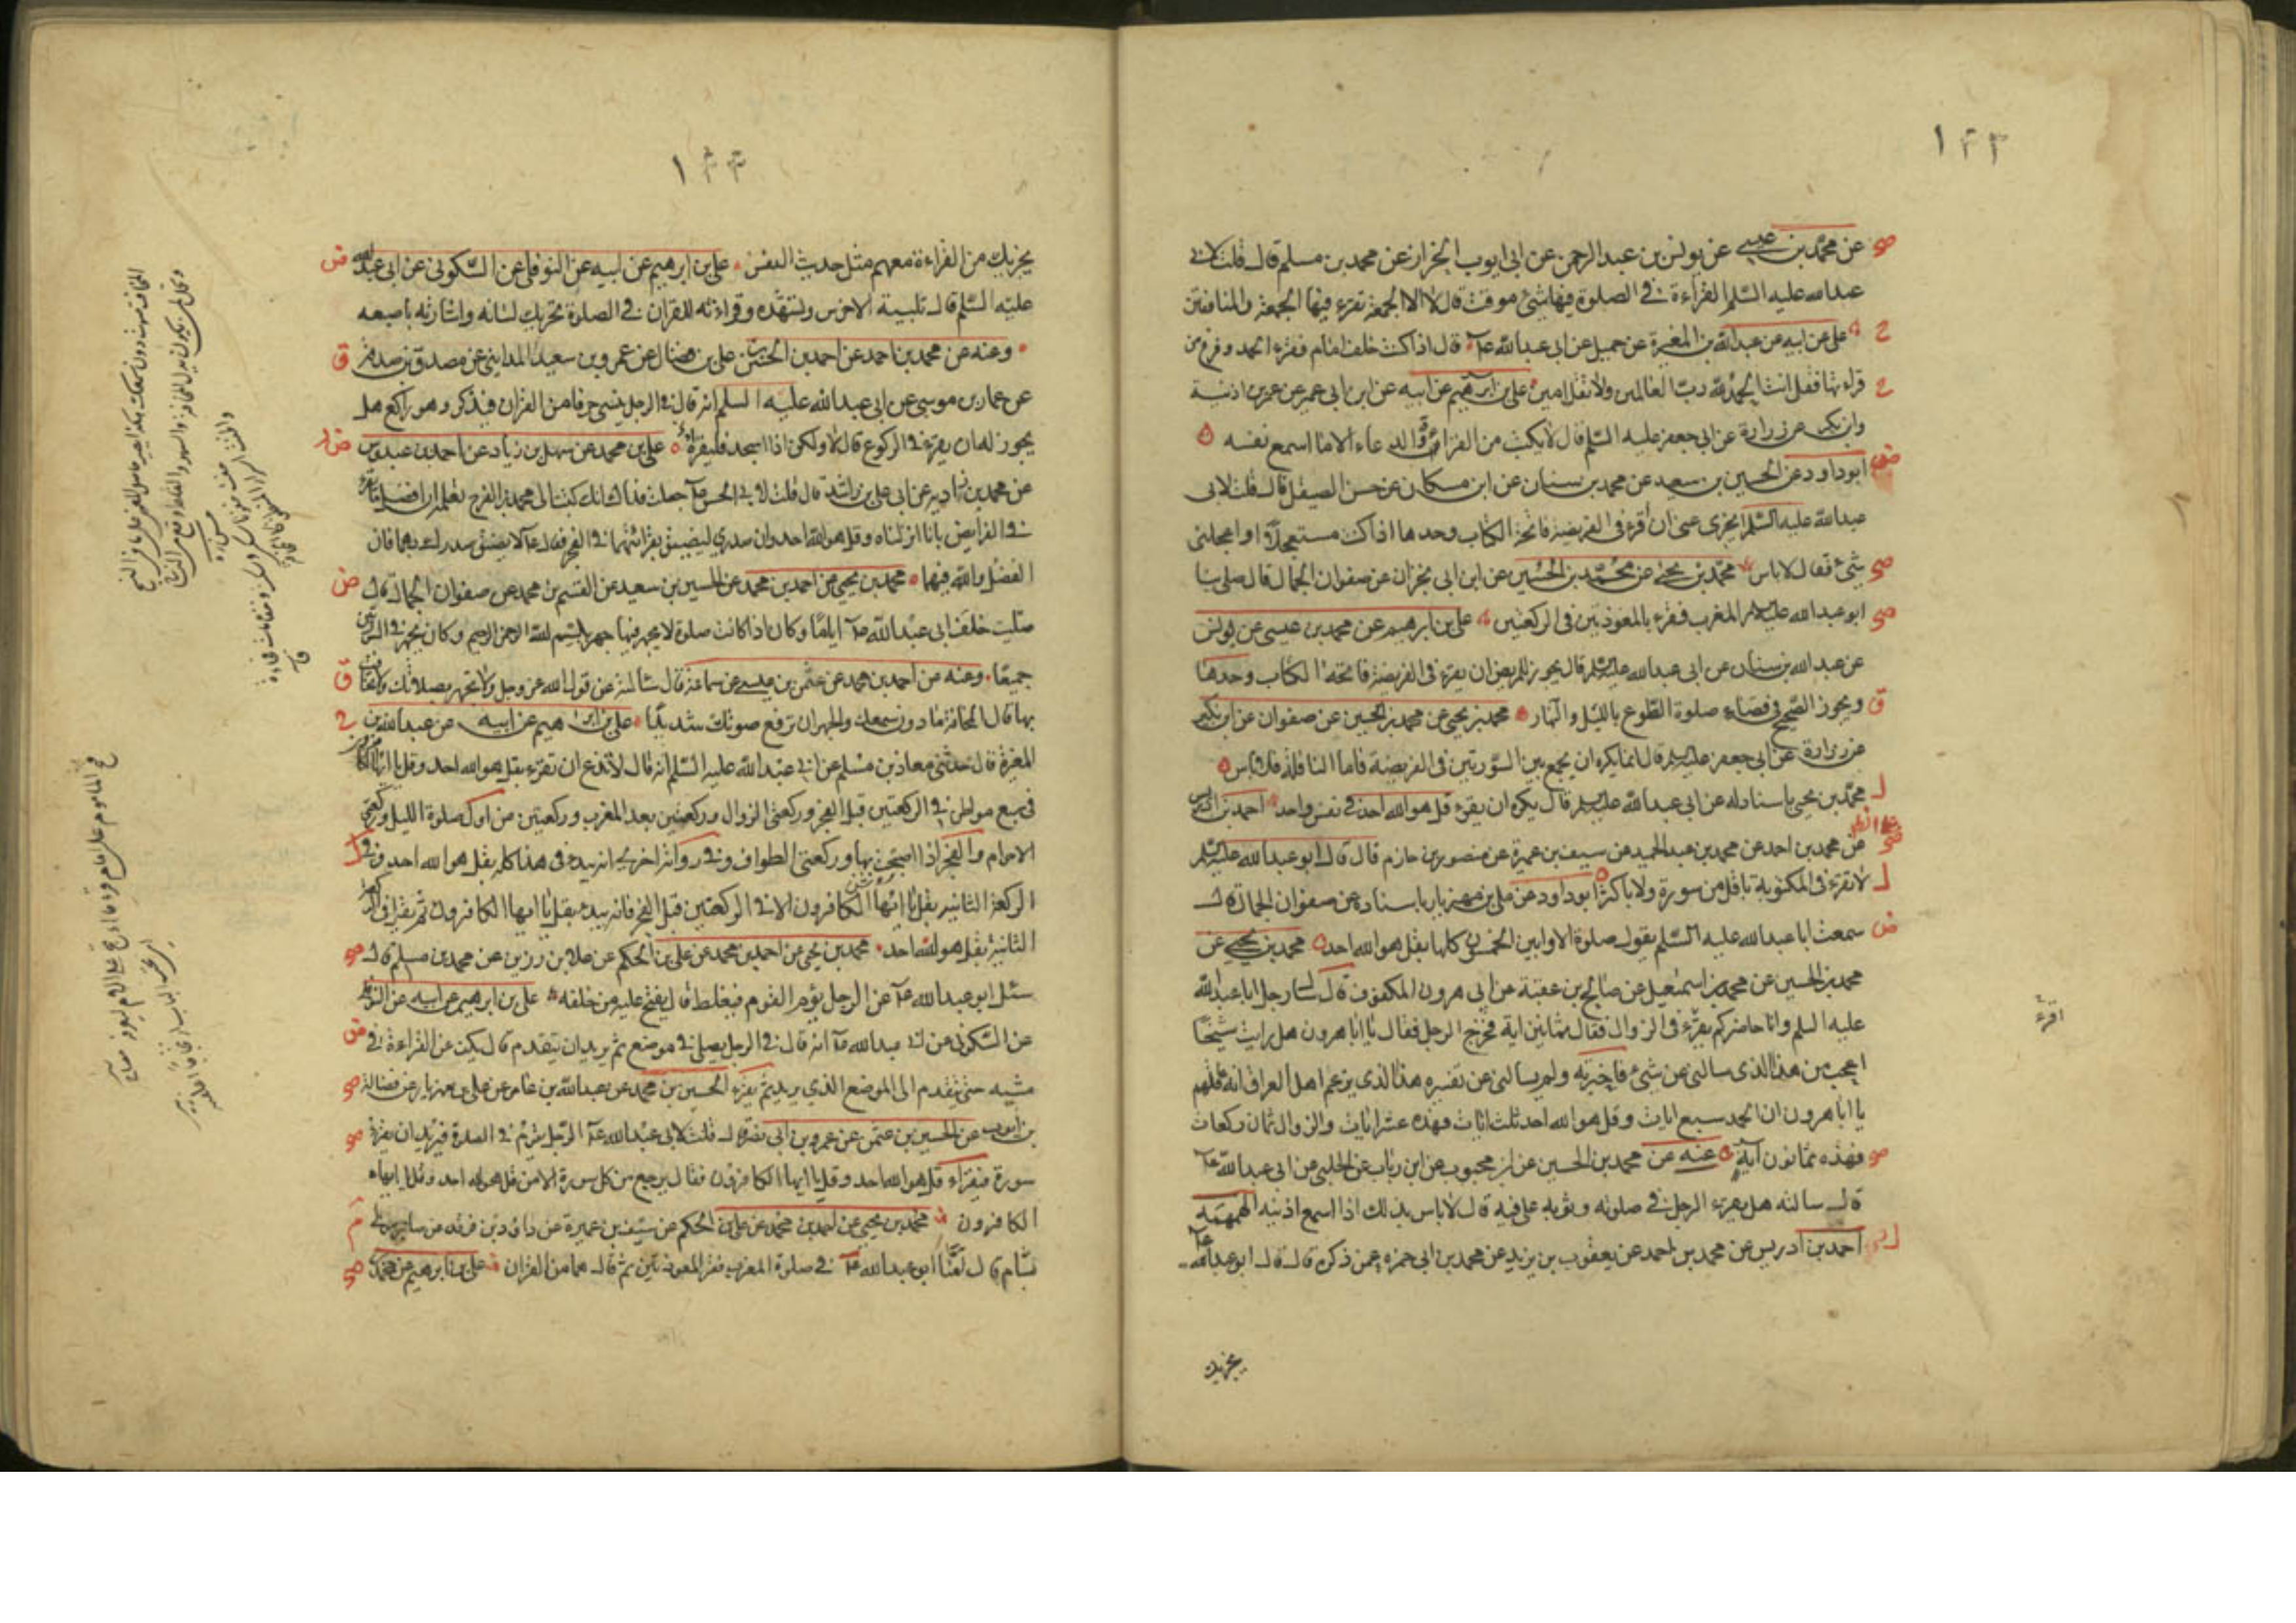 ١٢٣
عن محمد بن عيسى عن يونس بن عبد الرحمن عن ابى ايوب الخزاز عن محمد بن مسلم قال قلت لابى
عبد الله عليه السلم القراءة فى الصلوة فيها شئ موقت قال لا الا الجمعة تقرء فيها الجمعة والمنافقين
على عن ابيه عن عبد الله بن المغيرة عن جميل عن ابى عبد الله عـ قال اذا كنت خلف امام فقرء الحمد وفرغ من
قراءتها فقل انت الحمد لله رب العالمين ولا تقل امين على بن ابرهيم عن ابيه عن ابن ابى عمير عن عمر بن اذينة
وابن بكير عن زرارة عن ابى جعفر عليه السلم قال لا يكتب من القراءة والدعاء الا ما اسمع نفسه
ابو داود عن الحسين بن سعيد عن محمد بن سنان عن ابن مسكان عن حسن الصيقل قال قلت لابى
عبد الله عليه السلم ايجزى عنى ان اقرء فى الفريضة فاتحة الكتاب وحدها اذا كنت مستعجلا او اعجلنى
شئ فقال لا باس محمد بن يحيى عن محمد بن الحسين عن ابن ابى نجران عن صفوان الجمال قال صلى بنا
ابو عبد الله عليه السلم المغرب فقرء بالمعوذتين فى الركعتين على بن ابرهيم عن محمد بن عيسى عن يونس
عن عبد الله بن سنان عن ابى عبد الله عليه السلم قال يجوز للمريض ان يقرء فى الفريضة فاتحة الكتاب وحدها
ويجوز للصحيح فى قضاء صلوة التطوع بالليل والنهار محمد بن يحيى عن محمد بن الحسين عن صفوان عن ابن بكير
عن زرارة عن ابى جعفر عليه السلم قال انما يكره ان يجمع بين السورتين فى الفريضة فاما النافلة فلا باس
محمد بن يحيى باسناد له عن ابى عبد الله عليه السلم قال يكره ان يقرء قل هو الله احد فى نفس واحد احمد بن ادريس
عن محمد بن احمد عن محمد بن عبد الحميد عن سيف بن عميرة عن منصور بن حازم قال قال ابو عبد الله عليه السلم
لا تقرء فى المكتوبة باقل من سورة ولا باكثر ابو داود عن على بن مهزيار باسناده عن صفوان الجمال قال
سمعت ابا عبد الله عليه السلم يقول صلوة الاوابين الخمسون كلها بقل هو الله احد محمد بن يحيى عن
محمد بن الحسين عن محمد بن اسمعيل عن صالح بن عقبة عن ابى هرون المكفوف قال سال رجل ابا عبد الله
عليه السلم وانا حاضر كم يقرء فى الزوال فقال ثمانين اية فخرج الرجل فقال يا ابا هرون هل رايت شيخا
اعجب من هذا الذى سالنى عن شئ فاخبرته ولم يسالنى عن تفسيره هذا الذى يزعم اهل العراق انه عاقلهم
يا ابا هرون ان الحمد سبع ايات وقل هو الله احد ثلث ايات فهذه عشر ايات والزوال ثمان ركعات
فهذه ثمانون آية عنه عن محمد بن الحسين عن ابن محبوب عن ابن رئاب عن الحلبى عن ابى عبد الله عـ
قال سالته هل يقرء الرجل فى صلوته وثوبه على فيه قال لا باس بذلك اذا اسمع اذنيه الهمهمة
احمد بن ادريس عن محمد بن احمد عن يعقوب بن يزيد عن محمد بن ابى حمزه عمن ذكره قال قال ابو عبد الله عـ
اقرء
يجزيك
١٢٤
يجزيك من القراءة معهم مثل حديث النفس على بن ابرهيم عن ابيه عن النوفلى عن السكونى عن ابى عبد الله
عليه السلم قال تلبية الاخرس وتشهده وقراءته للقران فى الصلوة تحريك لسانه واشارته باصبعه
وعنه عن محمد بن احمد عن احمد بن الحسن بن على بن فضال عن عمرو بن سعيد المداينى عن مصدق بن صدقة
عن عمار بن موسى عن ابى عبد الله عليه السلم انه قال فى الرجل ينسى حرفا من القران فيذكر وهو راكع هل
يجوز له ان يقرء فى الركوع قال لا ولكن اذا سجد فليقرأه على بن محمد عن سهل بن زياد عن احمد بن عبدوس
عن محمد بن زاديه عن ابى على بن راشد قال قلت لابى الحسن عـ جعلت فداك انك كتبت الى محمد بن الفرج تعلمه ان افضل ما تقرء
فى الفرايض بانا انزلناه وقل هو الله احد وان صدرى ليضيق بقرائتهما فى الفجر فقال عـ لا يضيقن صدرك بهما فان
الفضل والله فيهما محمد بن يحيى عن احمد بن محمد عن الحسين بن سعيد عن القسم بن محمد عن صفوان الجمال قال
صليت خلف ابى عبد الله عـ اياما وكان اذا كانت صلوة لا يجهر فيها جهر ببسم الله الرحمن الرحيم وكان يجهر فى السورتين
جميعا وعنه عن احمد بن محمد عن عثمن بن عيسى عن سماعة قال سالته عن قول الله عز وجل ولا تجهر بصلوتك ولا تخافت
بها قال المخافتة ما دون سمعك والجهر ان ترفع صوتك شديدا على بن ابرهيم عن ابيه عن عبد الله بن
المغيرة قال حدثنى معاذ بن مسلم عن ابى عبد الله عليه السلم انه قال لا تدع ان تقرء بقل هو الله احد وقل يا ايها الكافرون
فى سبع مواطن فى الركعتين قبل الفجر وركعتى الزوال وركعتين بعد المغرب وركعتين من اول صلوة الليل وركعتى
الاحرام والفجر اذا اصبحت بها وركعتى الطواف وفى رواية اخرى انه يبدء فى هذا كله بقل هو الله احد وفى
الركعة الثانية بقل يا ايها الكافرون الا فى الركعتين قبل الفجر فانه يبدء بقل يا ايها الكافرون ثم يقرء فى الركعة
الثانية بقل هو الله احد محمد بن يحيى عن احمد بن محمد عن على بن الحكم عن علا بن رزين عن محمد بن مسلم قال
سئل ابو عبد الله عـ عن الرجل يؤم القوم فيغلط قال يفتح عليه من خلفه على بن ابرهيم عن ابيه عن النوفلى
عن السكونى عن ابى عبد الله عـ انه قال فى الرجل يصلى فى موضع ثم يريد ان يتقدم قال يكف عن القراءة فى
مشيه حتى يتقدم الى الموضع الذى يريد ثم يقرء الحسين بن محمد عن عبد الله بن عامر عن على بن مهزيار عن فضالة
بن ايوب عن الحسين بن عثمن عن عمرو بن ابى نصر قال قلت لابى عبد الله عـ الرجل يقوم فى الصلوة فيريد ان يقرء
سورة فيقراء قل هو الله احد وقل يا ايها الكافرون فقال يرجع من كل سورة الا من قل هو الله احد وقل يا ايها
الكافرون محمد بن يحيى عن احمد بن محمد عن على بن الحكم عن سيف بن عميرة عن داود بن فرقد عن صابر مولى
بسام قال امنا ابو عبد الله عـ فى صلوة المغرب فقرء المعوذتين ثم قال هما من القران على بن ابرهيم عن محمد